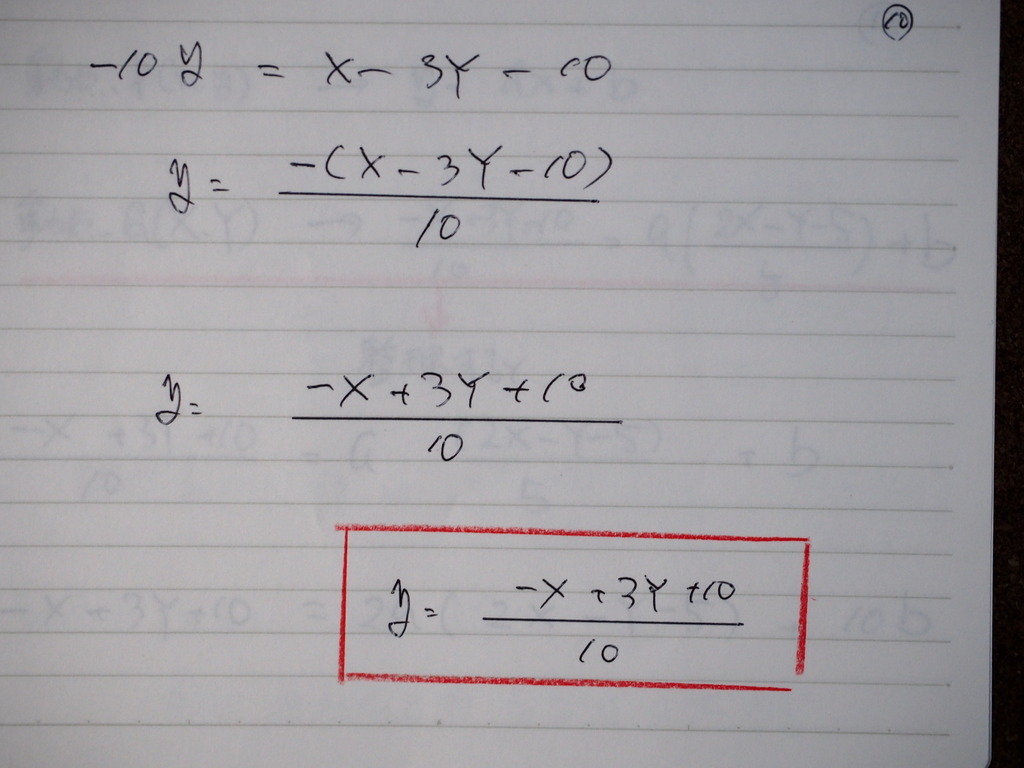 ⑩
-10y = X - 3Y - 10
y = -(X - 3Y - 10) / 10
y = -X + 3Y + 10 / 10
y = -X + 3Y + 10 / 10